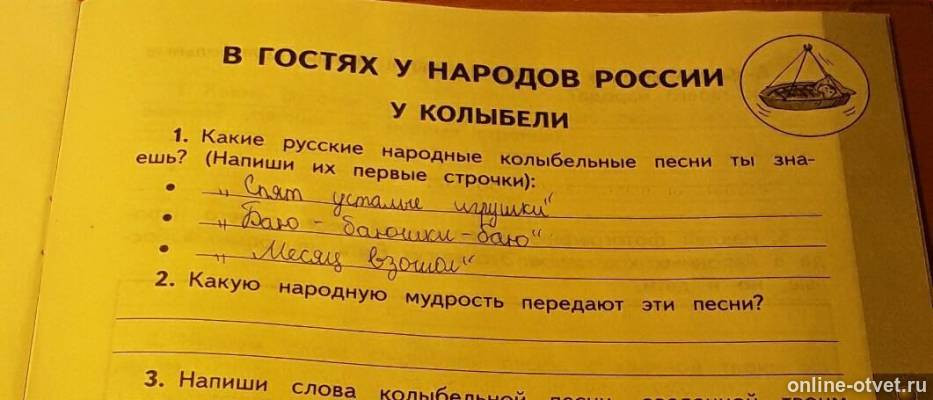 В ГОСТЯХ У НАРОДОВ РОССИИ
У КОЛЫБЕЛИ
1. Какие русские народные колыбельные песни ты зна-
ешь? (Напиши их первые строчки):
• „Спят усталые игрушки“
• „Баю - баюшки - баю“
• „Месяц взошол“
2. Какую народную мудрость передают эти песни?
3. Напиши слова колыбельной песни,
online-otvet.ru